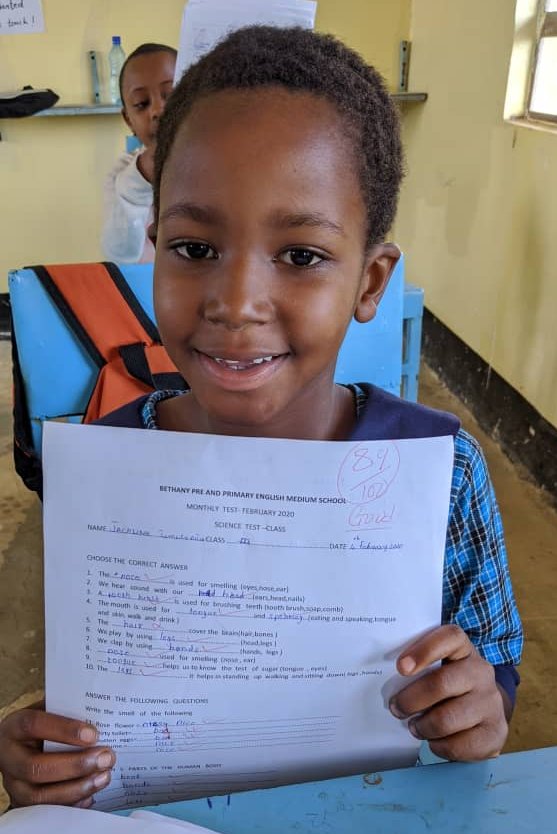 touch!
89
100
Good
BETHANY PRE AND PRIMARY ENGLISH MEDIUM SCHOOL
MONTHLY TEST- FEBRUARY 2020
SCIENCE TEST –CLASS
NAME CLASS III DATE February 2020
CHOOSE THE CORRECT ANSWER
1. The nose is used for smelling (eyes,nose,ear)
2. We hear sound with our head (ears,head,nails)
3. A tooth brush is used for brushing teeth (tooth brush,soap,comb)
4. The mouth is used for tongue and speaking (eating and speaking,tongue
and skin walk and drink)
5. The hair cover the brain(hair,bones)
6. We play by using legs (head,legs)
7. We clap by using hands (hands, legs)
8. nose used for smelling (nose, ear)
9. tongue helps us to know the test of sugar (tongue, eyes)
10. The legs it helps in standing up walking and sitting down( legs, hands)
ANSWER THE FOLLOWING QUESTIONS
Write the smell of the following
Rose flower nice
toilet bad
bad
nice
nice
PARTS OF THE HUMAN BODY
head
hands
legs